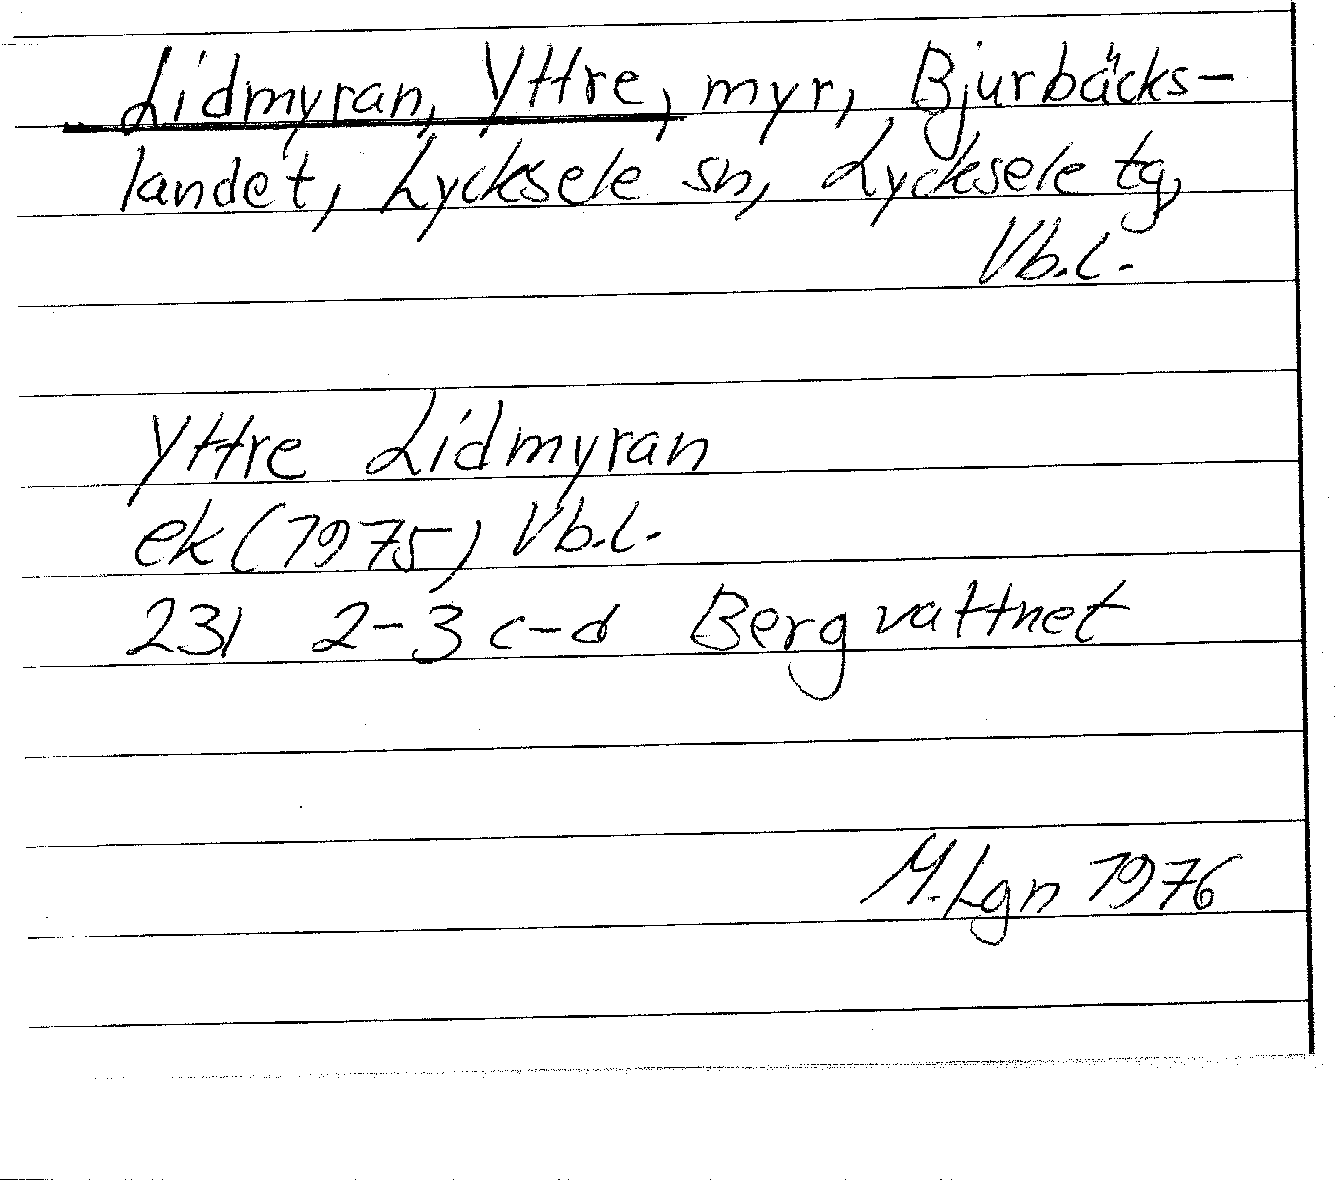 Lidmyran, Yttre, myr, Bjurbäcks-
landet, Lycksele sn, Lycksele tg,
Vb.l.
Yttre Lidmyran
ek (1975) Vb.l.
23I 2-3 c-d Bergvattnet
M.Lgn 1976